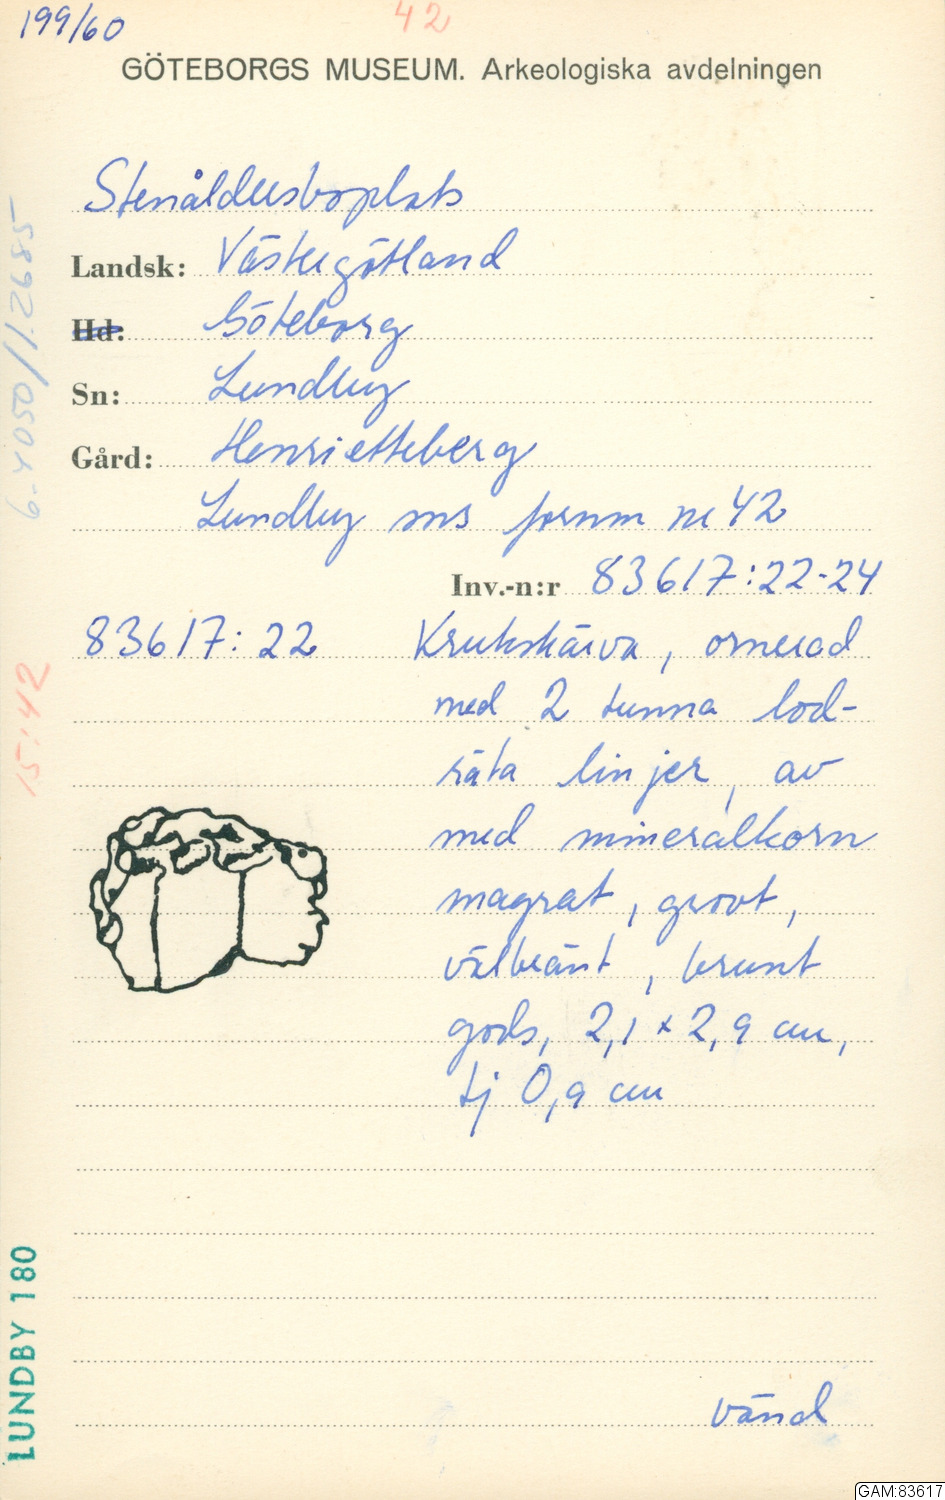 199/60
42
GÖTEBORGS MUSEUM. Arkeologiska avdelningen
Stenåldersboplats
Landsk: Västergötland
Hd: Göteborg
Sn: Lundby
Gård: Henrietteberg
Lundby sns fornm nr 42
Inv.-n:r 83617:22-24
83617:22 Krukskärva, ornerad
med 2 tunna lod-
räta linjer, av
med mineralkorn
magrat, grovt,
välbränt, brunt
gods, 2,1 x 2,9 cm,
tj 0,9 cm
vänd
15:42
LUNDBY 180
GAM:83617